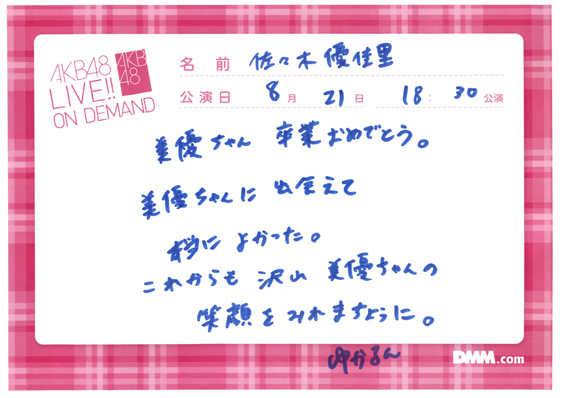 AKB48
LIVE!!
ON DEMAND
AKB
48
名 前 佐々木優佳里
公演日 8月 21日 18:30公演
美優ちゃん 卒業おめでとう。
美優ちゃんに 出会えて
本当に よかった。
これからも 沢山 美優ちゃんの
笑顔をみれますように。
ゆかるん
DMM.com